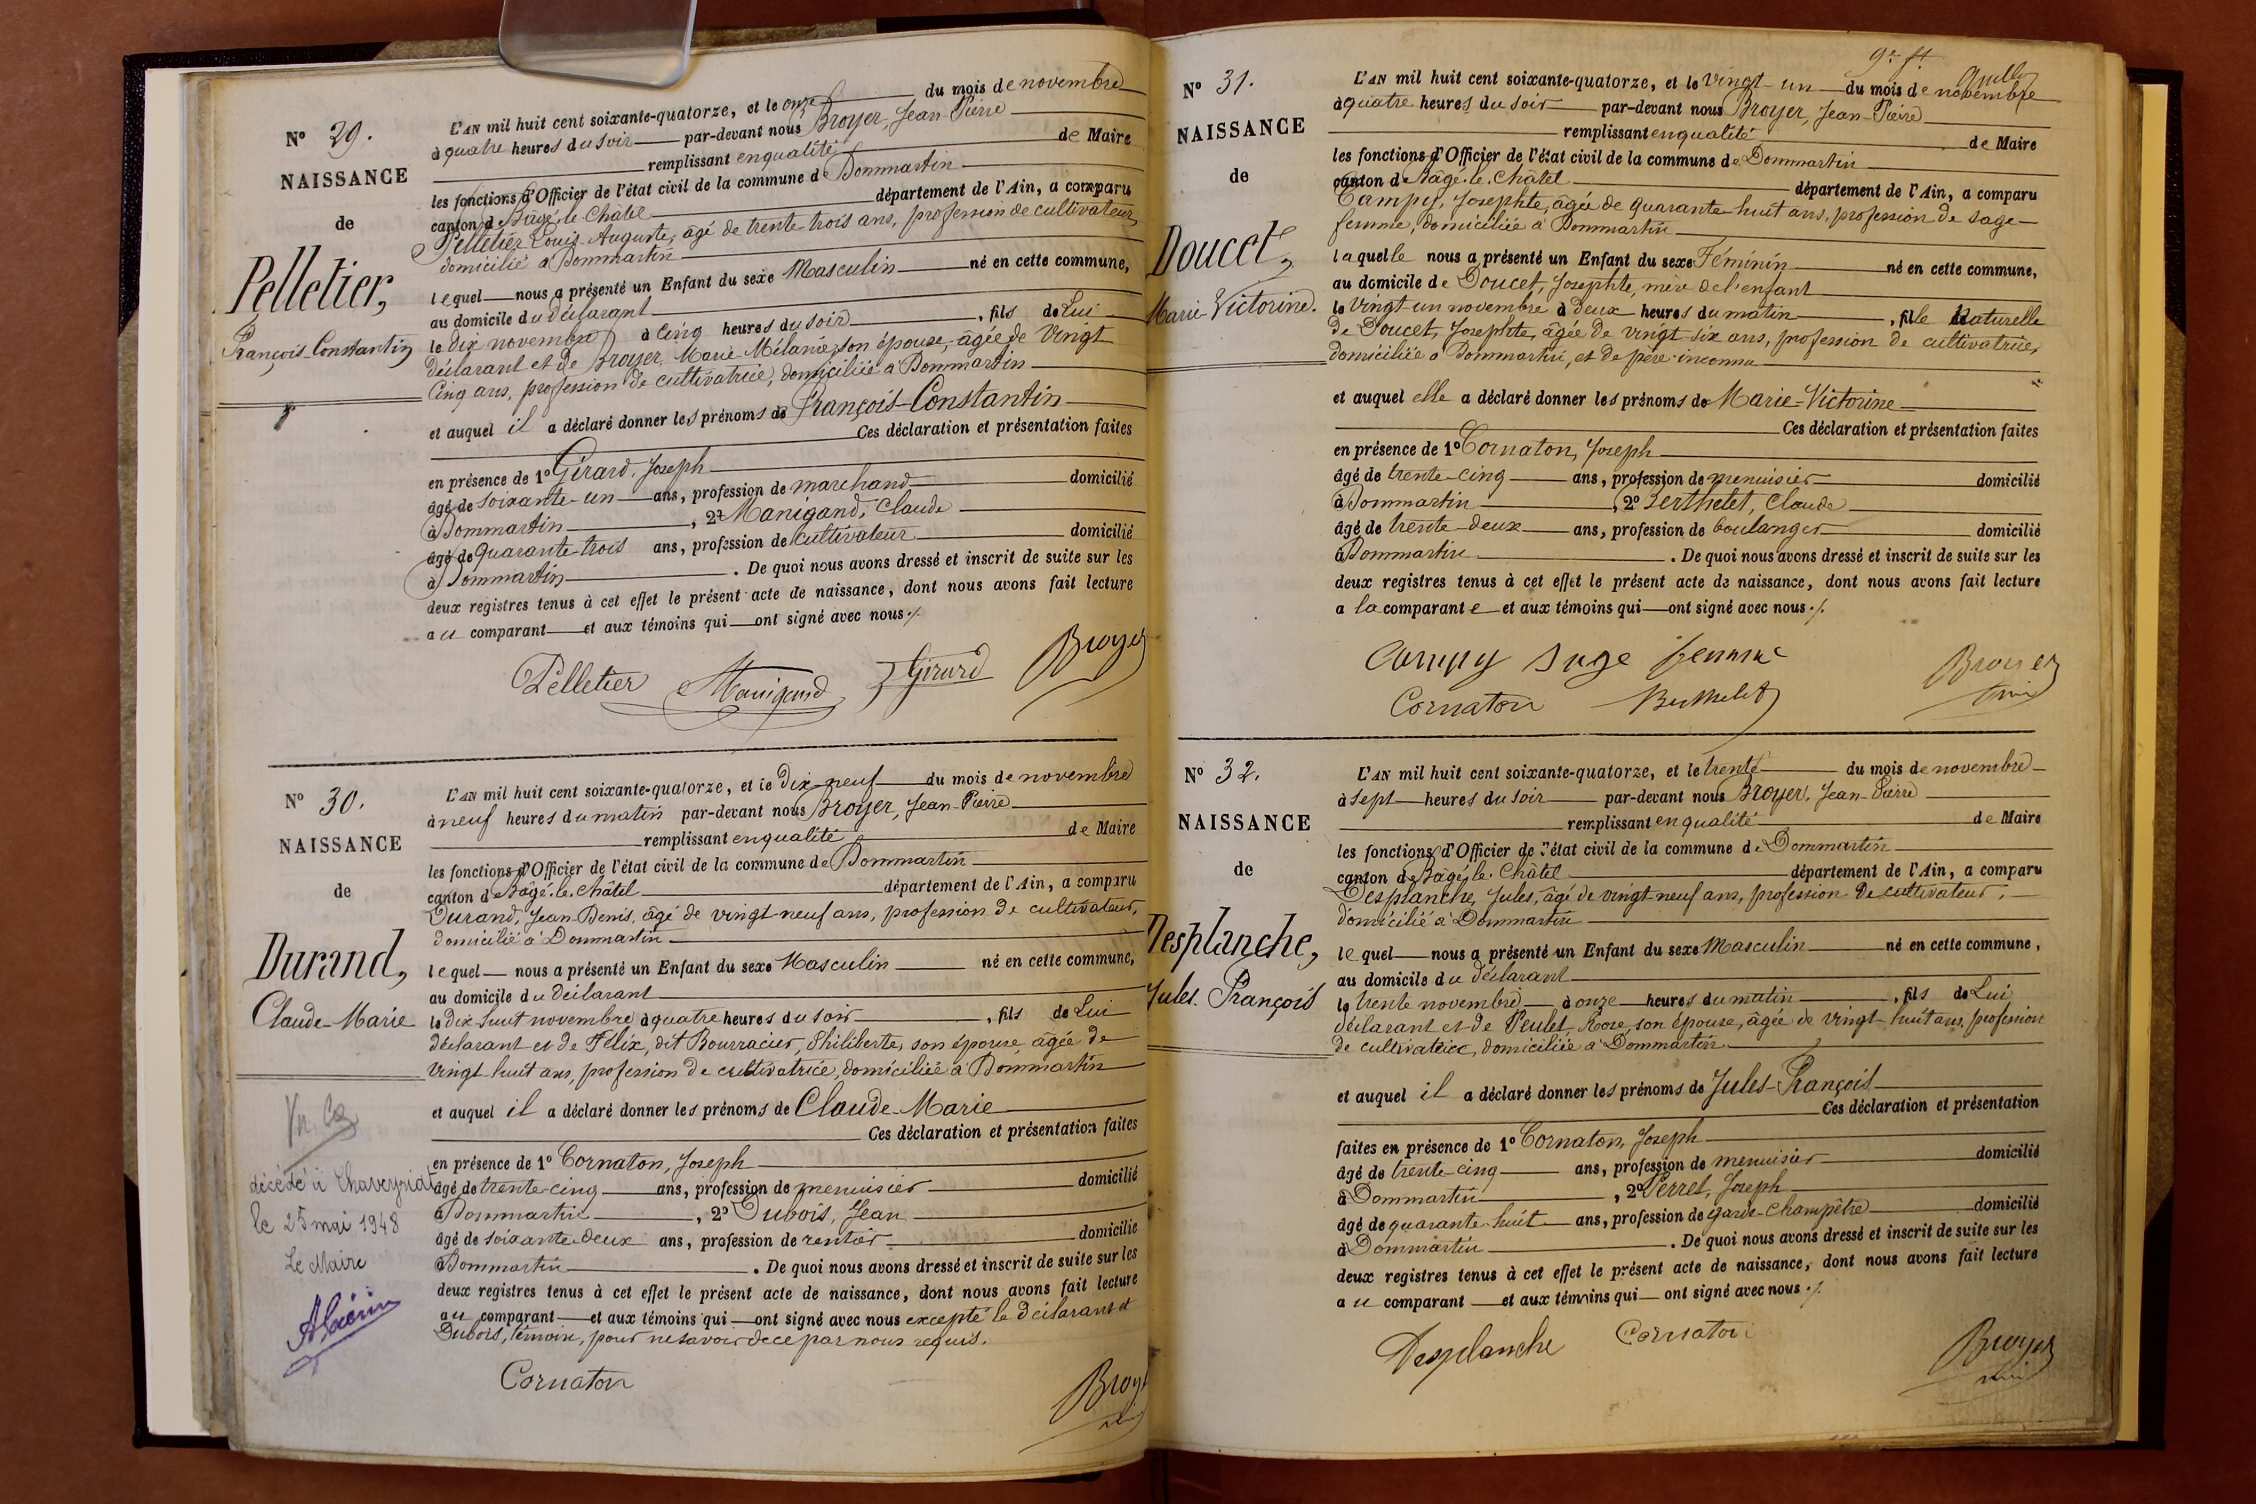 N° 29.
NAISSANCE
de
Pelletier,
François-Constantin
L'AN mil huit cent soixante-quatorze, et le onze du mois de novembre
à quatre heures du soir par-devant nous Broyer, Jean-Pierre
remplissant en qualité de Maire
les fonctions d'Officier de l'état civil de la commune de Dommartin
canton de Bâgé-le-Châtel département de l'Ain, a comparu
Pelletier Louis-Auguste, âgé de trente trois ans, profession de cultivateur,
domicilié à Dommartin
lequel nous a présenté un Enfant du sexe Masculin né en cette commune,
au domicile du déclarant
le dix novembre à cinq heures du soir, fils de Lui
déclarant et de Broyer, Marie-Mélanie, son épouse, âgée de vingt
cinq ans, profession de cultivatrice, domiciliée à Dommartin
et auquel il a déclaré donner les prénoms de François-Constantin
Ces déclaration et présentation faites
en présence de 1° Girard, Joseph
âgé de soixante-un ans, profession de marchand domicilié
à Dommartin, 2° Manigand, Claude
âgé de quarante-trois ans, profession de cultivateur domicilié
à Dommartin. De quoi nous avons dressé et inscrit de suite sur les
deux registres tenus à cet effet le présent acte de naissance, dont nous avons fait lecture
au comparant et aux témoins qui ont signé avec nous ./.
Pelletier Manigand Girard Broyer
N° 30.
NAISSANCE
de
Durand,
Claude-Marie
décédé à Chaveyriat
le 25 mai 1948
Le Maire
L'AN mil huit cent soixante-quatorze, et le dix-neuf du mois de novembre
à neuf heures du matin par-devant nous Broyer, Jean-Pierre
remplissant en qualité de Maire
les fonctions d'Officier de l'état civil de la commune de Dommartin
canton de Bâgé-le-Châtel département de l'Ain, a comparu
Durand, Jean-Denis, âgé de vingt-neuf ans, profession de cultivateur,
domicilié à Dommartin
lequel nous a présenté un Enfant du sexe Masculin né en cette commune,
au domicile du déclarant
le dix huit novembre à quatre heures du soir, fils de Lui
déclarant et de Félix, dit Bourracier, Philiberte, son épouse âgée de
vingt-huit ans, profession de cultivatrice, domiciliée à Dommartin
et auquel il a déclaré donner les prénoms de Claude-Marie
Ces déclaration et présentation faites
en présence de 1° Cornaton, Joseph
âgé de trente-cinq ans, profession de menuisier domicilié
à Dommartin, 2° Dubois, Jean
âgé de soixante-deux ans, profession de rentier domicilié
à Dommartin. De quoi nous avons dressé et inscrit de suite sur les
deux registres tenus à cet effet le présent acte de naissance, dont nous avons fait lecture
au comparant et aux témoins qui ont signé avec nous excepté le déclarant et
Dubois, témoin, pour ne savoir de ce par nous requis.
Cornaton Broyer
N° 31.
NAISSANCE
de
Doucet,
Marie-Victorine.
L'AN mil huit cent soixante-quatorze, et le vingt-un du mois de novembre
à quatre heures du soir par-devant nous Broyer, Jean-Pierre
remplissant en qualité de Maire
les fonctions d'Officier de l'état civil de la commune de Dommartin
canton de Bâgé-le-Châtel département de l'Ain, a comparu
Campy, Josephte, âgée de quarante-huit ans, profession de sage-
femme, domiciliée à Dommartin
laquelle nous a présenté un Enfant du sexe Féminin né en cette commune,
au domicile de Doucet, Josephte, mère de l'enfant
le vingt-un novembre à deux heures du matin, fille Naturelle
de Doucet, Josephte, âgée de vingt-six ans, profession de cultivatrice,
domiciliée à Dommartin, et de père inconnu
et auquel elle a déclaré donner les prénoms de Marie-Victorine
Ces déclaration et présentation faites
en présence de 1° Cornaton, Joseph
âgé de trente-cinq ans, profession de menuisier domicilié
à Dommartin, 2° Berthelet, Claude
âgé de trente-deux ans, profession de boulanger domicilié
à Dommartin. De quoi nous avons dressé et inscrit de suite sur les
deux registres tenus à cet effet le présent acte de naissance, dont nous avons fait lecture
a la comparante et aux témoins qui ont signé avec nous ./.
Campy sage femme Broyer
Cornaton Berthelet
N° 32.
NAISSANCE
de
Desplanche,
Jules-François
L'AN mil huit cent soixante-quatorze, et le trente du mois de novembre
à sept heures du soir par-devant nous Broyer, Jean-Pierre
remplissant en qualité de Maire
les fonctions d'Officier de l'état civil de la commune de Dommartin
canton de Bâgé-le-Châtel département de l'Ain, a comparu
Desplanche, Jules, âgé de vingt neuf ans, profession de cultivateur,
domicilié à Dommartin
lequel nous a présenté un Enfant du sexe Masculin né en cette commune,
au domicile du déclarant
le trente novembre à onze heures du matin, fils de Lui
déclarant et de Peulet, Rose, son épouse, âgée de vingt-huit ans, profession
de cultivatrice, domiciliée à Dommartin
et auquel il a déclaré donner les prénoms de Jules-François
Ces déclaration et présentation
faites en présence de 1° Cornaton, Joseph
âgé de trente-cinq ans, profession de menuisier domicilié
à Dommartin, 2° Perret, Joseph
âgé de quarante-huit ans, profession de garde-champêtre domicilié
à Dommartin. De quoi nous avons dressé et inscrit de suite sur les
deux registres tenus à cet effet le présent acte de naissance, dont nous avons fait lecture
au comparant et aux témoins qui ont signé avec nous ./.
Desplanche Cornaton Broyer